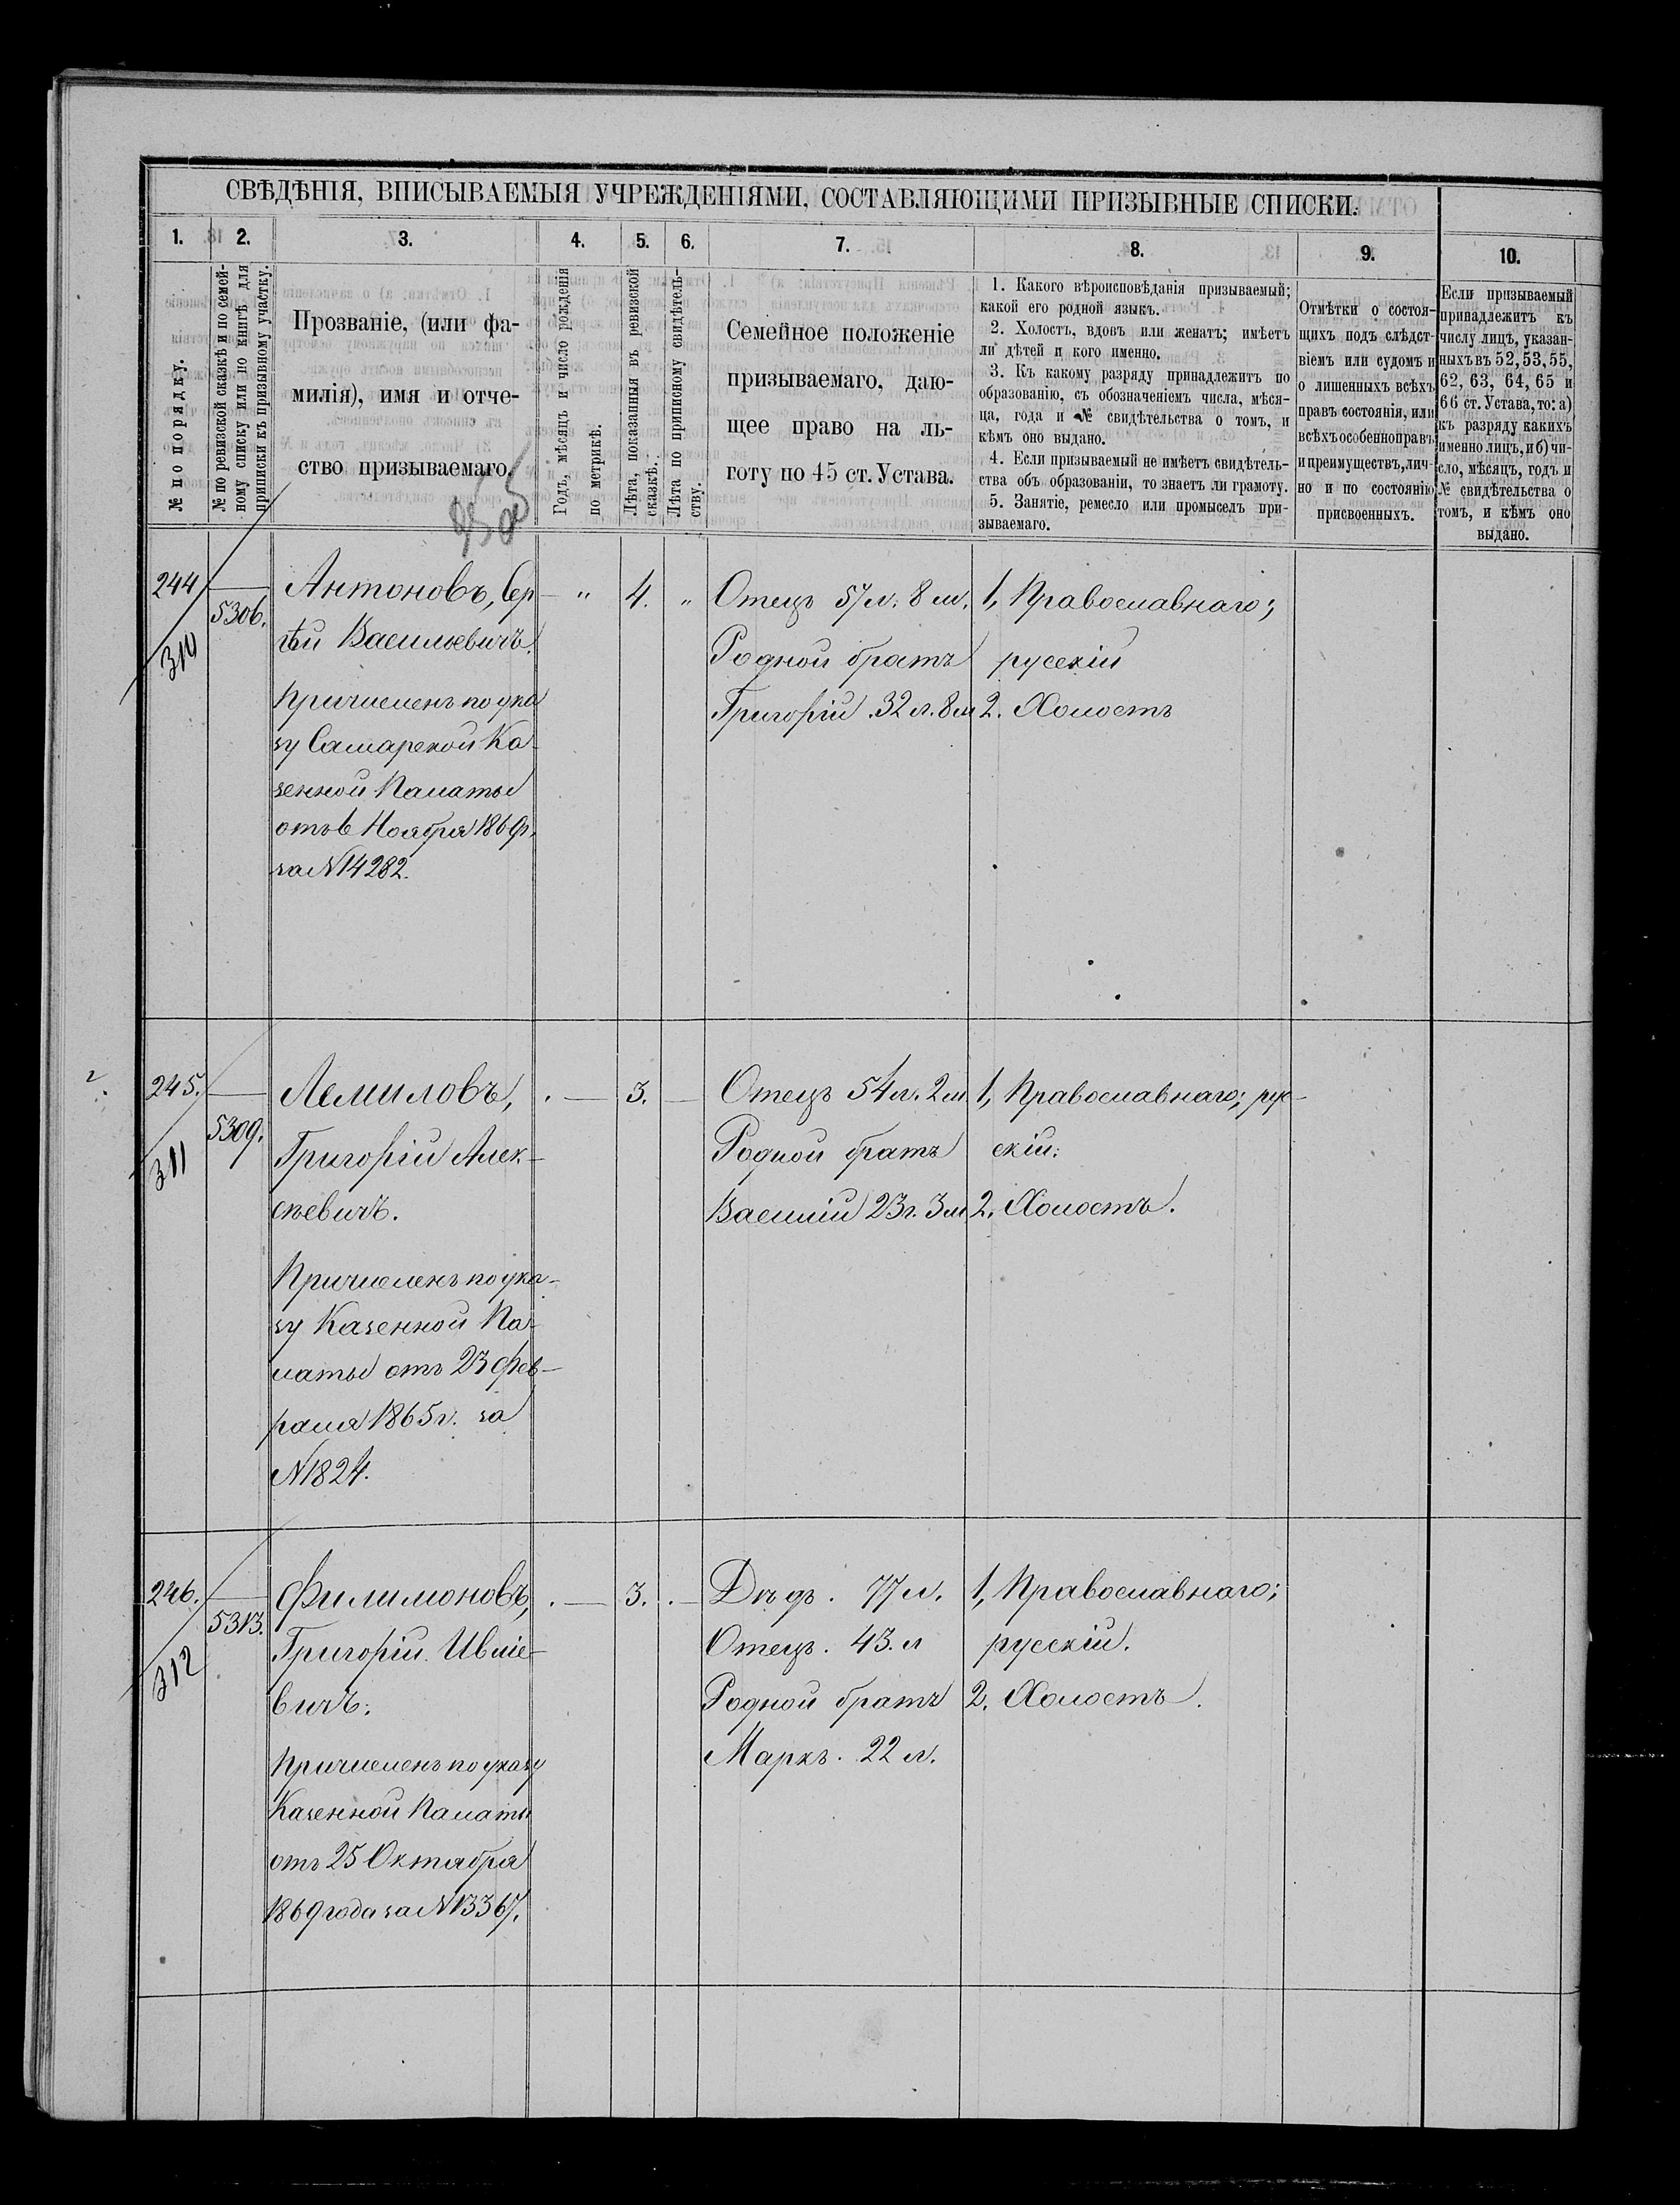 СВѢДѢНІЯ, ВПИСЫВАЕМЫЯ УЧРЕЖДЕНІЯМИ, СОСТАВЛЯЮЩИМИ ПРИЗЫВНЫЕ СПИСКИ.
1.
2.
3.
4.
5.
6.
7.
8.
9.
10.
№ по порядку.
№ по ревизской сказкѣ и по семей-
ному списку или по книгѣ для
приписки къ призывному участку.
Прозваніе, (или фа-
милія), имя и отче-
ство призываемаго.
Годъ, мѣсяцъ и число рожденія
по метрикѣ.
Лѣта, показанныя въ ревизской
сказкѣ.
Лѣта по приписному свидѣтель-
ству.
Семейное положеніе
призываемаго, даю-
щее право на ль-
готу по 45 ст. Устава.
1. Какого вѣроисповѣданія призываемый;
какой его родной языкъ.
2. Холостъ, вдовъ или женатъ; имѣетъ
ли дѣтей и кого именно.
3. Къ какому разряду принадлежитъ по
образованію, съ обозначеніемъ числа, мѣся-
ца, года и № свидѣтельства о томъ, и
кѣмъ оно выдано.
4. Если призываемый не имѣетъ свидѣтель-
ства объ образованіи, то знаетъ ли грамоту.
5. Занятіе, ремесло или промыселъ при-
зываемаго.
Отмѣтки о состоя-
щихъ подъ слѣдст-
віемъ или судомъ и
о лишенныхъ всѣхъ
правъ состоянія, или
всѣхъ особенно правъ
и преимуществъ, лич-
но и по состоянію
присвоенныхъ.
Если призываемый
принадлежитъ къ
числу лицъ, указан-
ныхъ въ 52, 53, 55,
62, 63, 64, 65 и
66 ст. Устава, то: а)
къ разряду какихъ
именно лицъ, и б) чи-
сло, мѣсяцъ, годъ и
№ свидѣтельства о
томъ, и кѣмъ оно
выдано.
244
310
5306.
Антоновъ, Сер-
гѣй Васильевичъ.
Причисленъ по ука
зу Самарской Ка-
зенной Палаты
отъ 6 Ноября 1869г.
за N 14282.
"
4.
"
Отецъ 57 л. 8 м.
Родной братъ
Григорій . 32 л. 8 м
1, Православнаго;
русскій
2. Холостъ
245.
311
5309.
Лемиловъ,
Григорій Алек-
сѣевичъ.
Причисленъ по ука-
зу Казенной Па-
латы отъ 23 фев-
раля 1865 г. за
N 1824.
. —
3.
—
Отецъ 54 л. 2 м
Родной братъ
Василій 23 г. 3 м
1, Православнаго; рус-
скій.
2. Холостъ.
246.
312
5313.
Филимоновъ,
Григорій Ивліе-
вичъ.
Причисленъ по указу
Казенной Палаты
отъ 25 Октября
1869 года за N 13367.
. —
3.
. —
Дѣдъ . 77 л.
Отецъ . 43. л
Родной братъ
Маркъ . 22 л.
1, Православнаго;
русскій.
2. Холостъ.